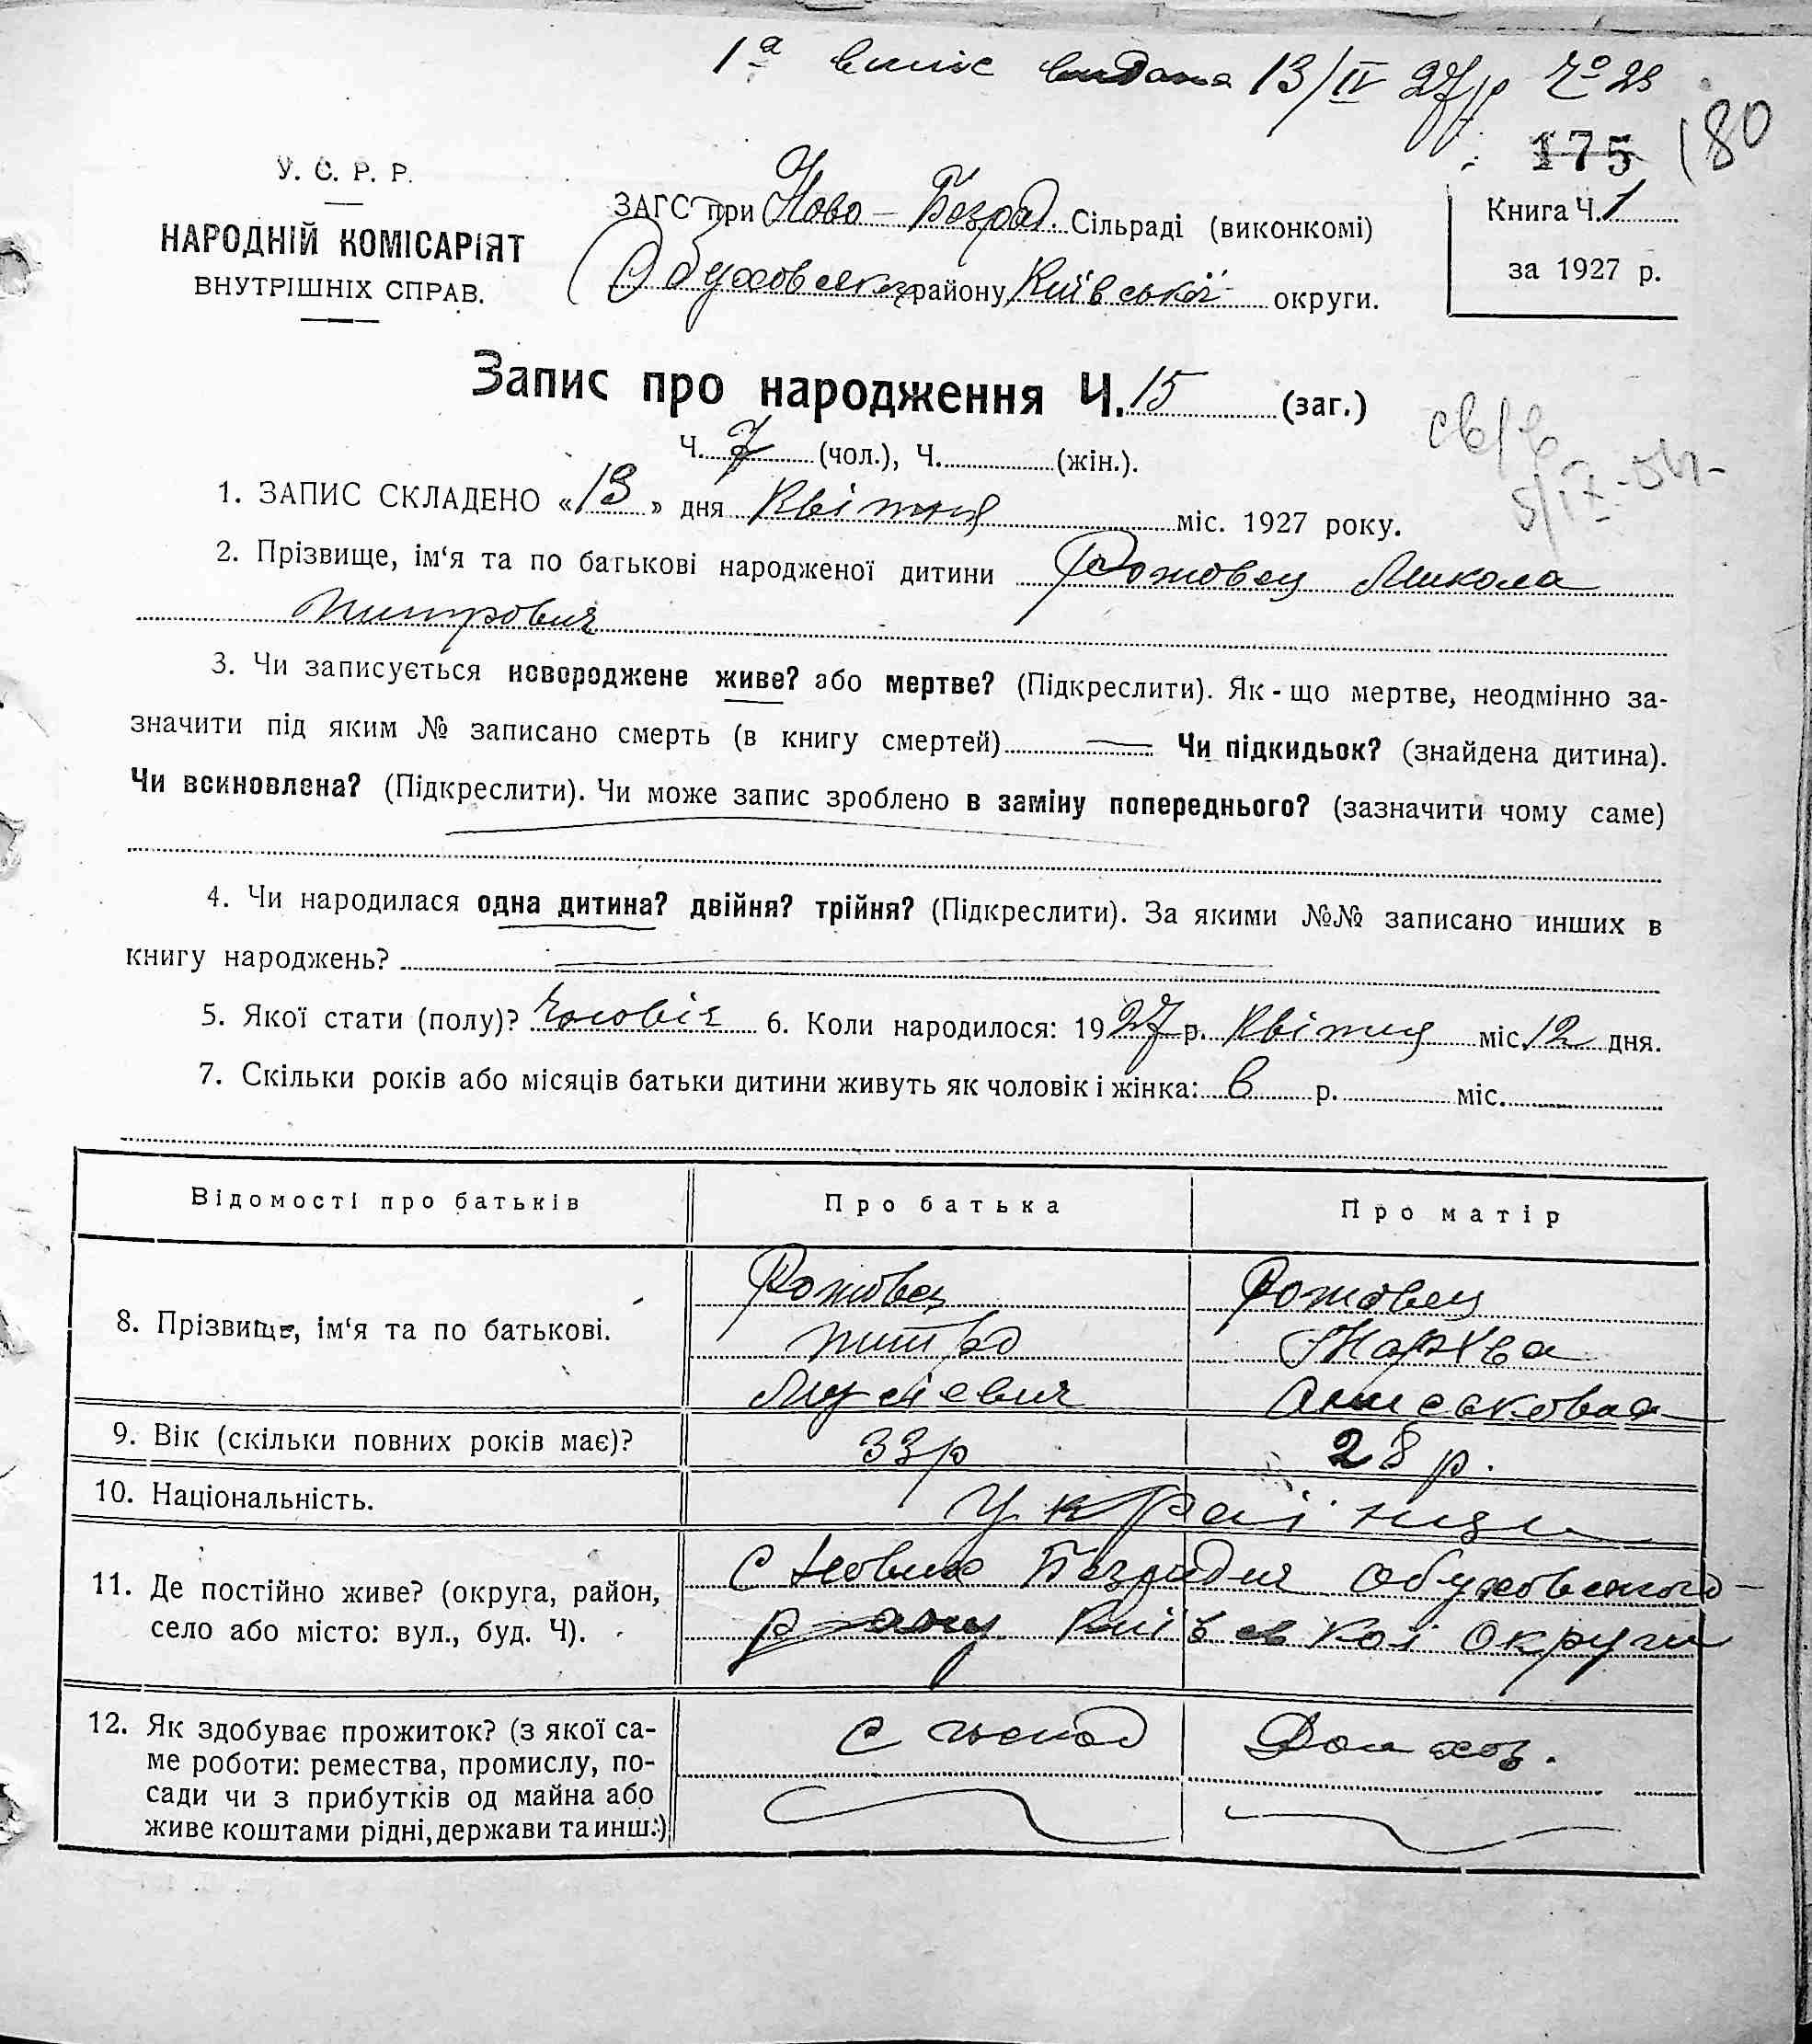 1а випис видана 13/IV 27р Ч° 23
175 180
У. С. Р. Р.
НАРОДНІЙ КОМІСАРІЯТ
ВНУТРІШНІХ СПРАВ.
ЗАГС при Ново-Безрад. Сільраді (виконкомі)
Обуховськ району Київської округи.
Книга Ч. 1
за 1927 р.
Запис про народження Ч. 15 (заг.)
Ч. 7 (чол.), Ч. (жін.).
5/IX-54
1. ЗАПИС СКЛАДЕНО «13» дня Квітня міс. 1927 року.
2. Прізвище, ім‘я та по батькові народженої дитини Рожовец Микола
Питрович
3. Чи записується новороджене живе? або мертве? (Підкреслити). Як-що мертве, неодмінно за-
значити під яким № записано смерть (в книгу смертей) — Чи підкидьок? (знайдена дитина).
Чи всиновлена? (Підкреслити). Чи може запис зроблено в заміну попереднього? (зазначити чому саме)
4. Чи народилася одна дитина? двійня? трійня? (Підкреслити). За якими №№ записано инших в
книгу народжень?
5. Якої стати (полу)? Чоловіч 6. Коли народилося: 1927 р. Квітня міс. 12 дня.
7. Скільки років або місяців батьки дитини живуть як чоловік і жінка: р. міс.
Відомості про батьків Про батька Про матір
8. Прізвище, ім‘я та по батькові.
Рожовец Рожовец
Питро Мархва
Мусієвич
9. Вік (скільки повних років має)? 33р 28 р.
10. Національність. Українци
11. Де постійно живе? (округа, район,
село або місто: вул., буд. Ч).
с Нових Безрадич Обуховського
району Київської Округи
12. Як здобуває прожиток? (з якої са-
ме роботи: ремества, промислу, по-
сади чи з прибутків од майна або
живе коштами рідні, держави та инш.)
С господ Дом хоз.